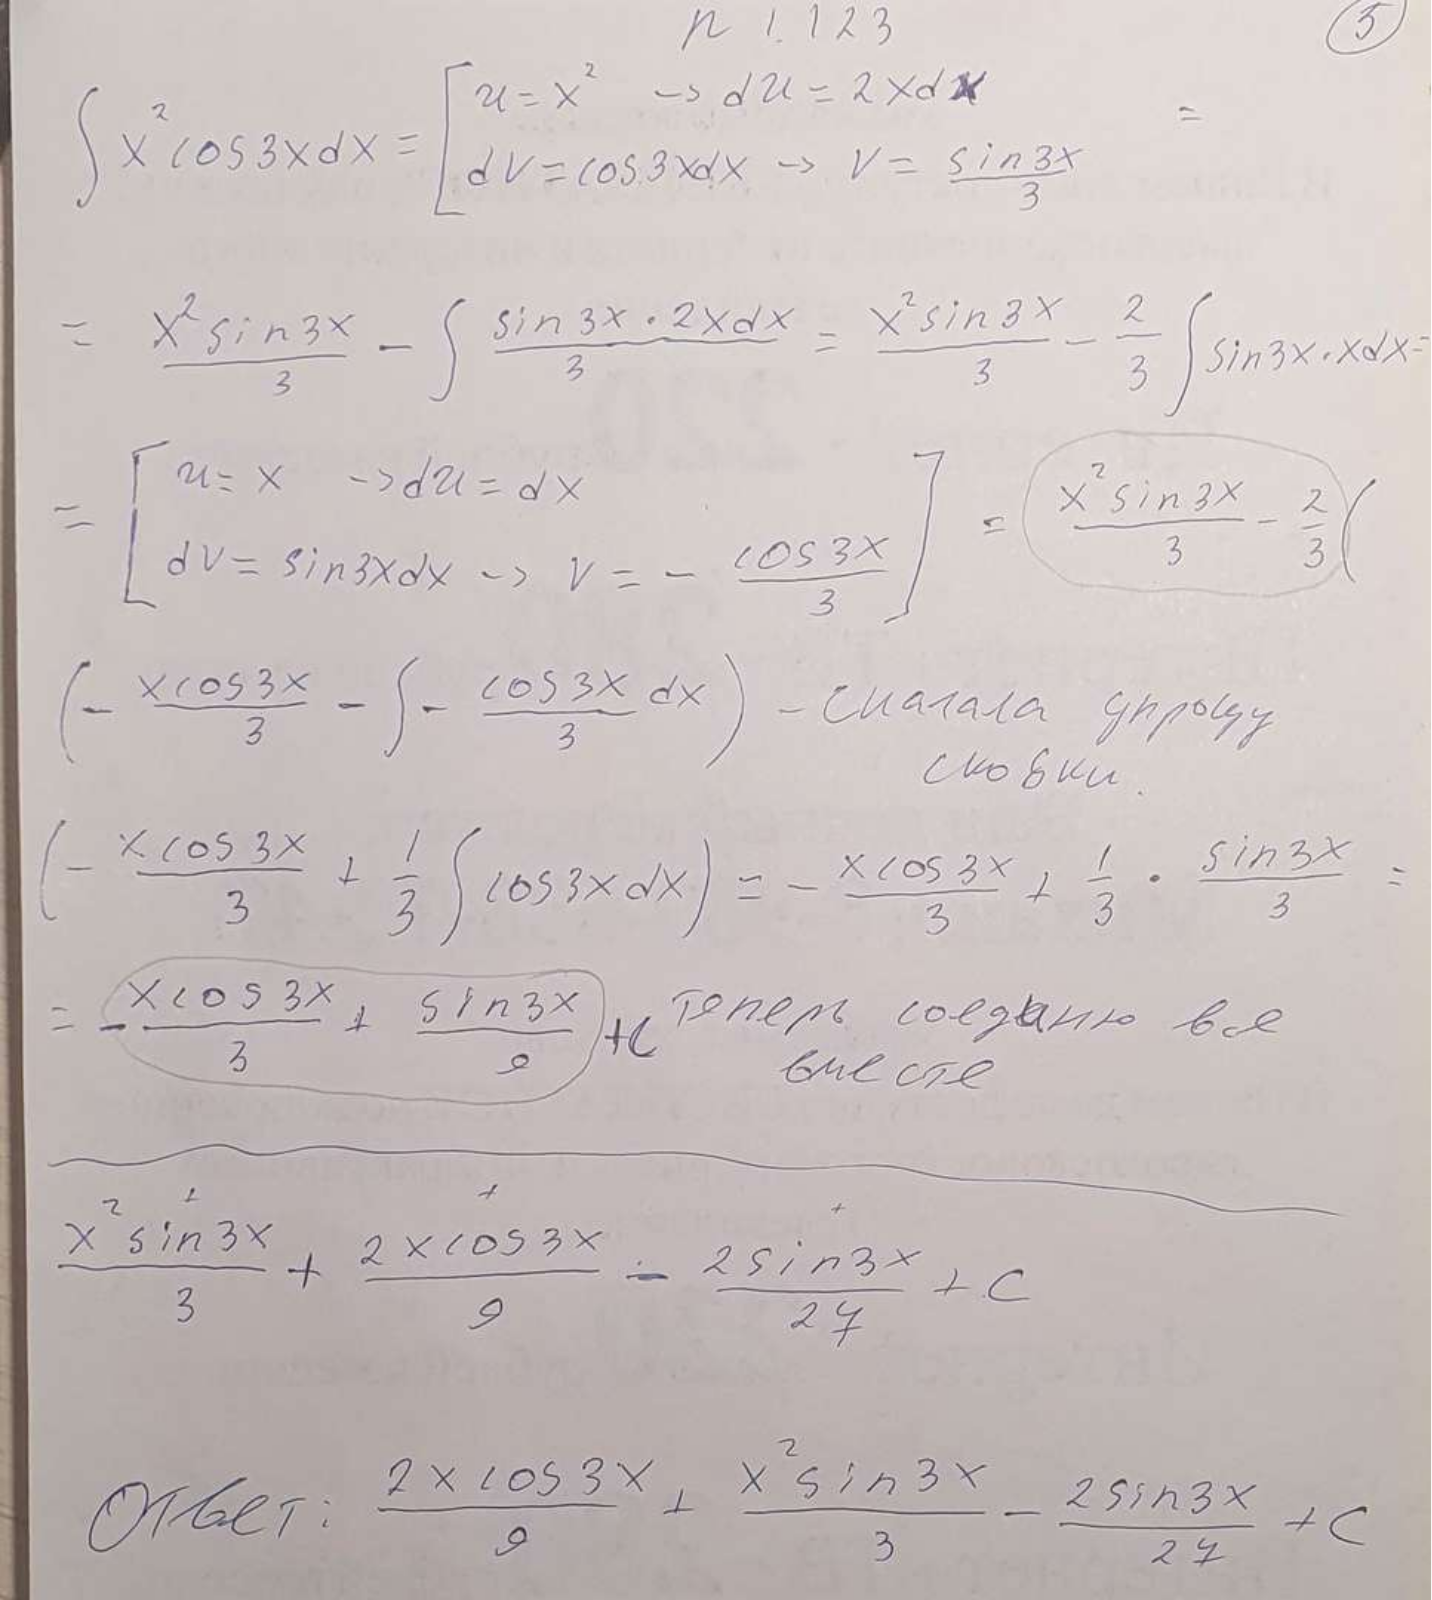 n 1.123
5
∫ x² cos3xdx = [ u = x² → du = 2xdx
dv = cos3xdx → v = sin3x/3 =
= x² sin3x/3 - ∫ sin3x · 2xdx/3 = x² sin3x/3 - 2/3 ∫ sin3x · xdx =
= [ u = x → du = dx
dv = sin3xdx → v = - cos3x/3 ] = x² sin3x/3 - 2/3 (
(- xcos3x/3 - ∫ - cos3x/3 dx) - сначала упрощу
скобки.
(- xcos3x/3 + 1/3 ∫ cos3xdx) = - xcos3x/3 + 1/3 · sin3x/3 =
= - xcos3x/3 + sin3x/9 + C теперь соединю все
вместе
x² sin3x/3 + 2xcos3x/9 - 2sin3x/27 + C
Ответ: 2xcos3x/9 + x² sin3x/3 - 2sin3x/27 + C